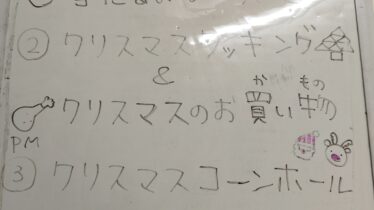 ② クリスマスクッキング
&
クリスマスのお買い物
か もの
PM
③ クリスマスコーンホール